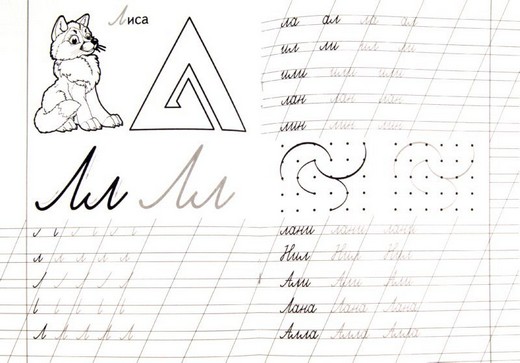 Лиса
Лл Лл
л л л л л
ла ал ла ал
ил ли ил ли
или или или
лан лан лан
лин лин лин
лани лани лани
Нил Нил Нил
Али Али Али
Лана Лана Лана
Алла Алла Алла